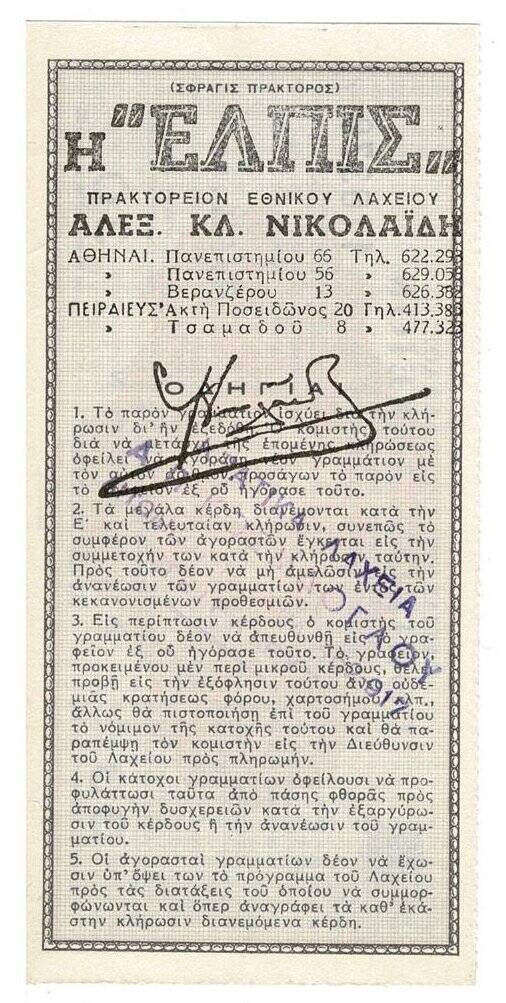 (ΣΦΡΑΓΙΣ ΠΡΑΚΤΟΡΟΣ)
Η "ΕΛΠΙΣ„
ΠΡΑΚΤΟΡΕΙΟΝ ΕΘΝΙΚΟΥ ΛΑΧΕΙΟΥ
ΑΛΕΞ. ΚΛ. ΝΙΚΟΛΑΪΔΗ
ΑΘΗΝΑΙ. Πανεπιστημίου 66 Τηλ. 622.293
» Πανεπιστημίου 56 » 629.05
» Βερανζέρου 13 » 626.362
ΠΕΙΡΑΙΕΥΣ Ἀκτὴ Ποσειδῶνος 20 Τηλ. 413.383
» Τσαμαδοῦ 8 » 477.323
ΟΔΗΓΙΑΙ
1. Τὸ παρὸν γραμμάτιον ἰσχύει διὰ τὴν κλή-
ρωσιν δι' ἣν ἐξεδόθη. Ὁ κομιστὴς τούτου
διὰ νὰ μετάσχῃ τῆς ἑπομένης κληρώσεως
ὀφείλει νὰ ἀγοράσῃ νέον γραμμάτιον μὲ
τὸν αὐτὸν ἀριθμὸν προσάγων τὸ παρὸν εἰς
τὸ γραφεῖον ἐξ οὗ ἠγόρασε τοῦτο.
2. Τὰ μεγάλα κέρδη διανέμονται κατὰ τὴν
Ε' καὶ τελευταίαν κλήρωσιν, συνεπῶς τὸ
συμφέρον τῶν ἀγοραστῶν ἔγκειται εἰς τὴν
συμμετοχήν των κατὰ τὴν κλήρωσιν ταύτην.
Πρὸς τοῦτο δέον νὰ μὴ ἀμελῶσιν εἰς τὴν
ἀνανέωσιν τῶν γραμματίων των ἐντὸς τῶν
κεκανονισμένων προθεσμιῶν.
3. Εἰς περίπτωσιν κέρδους ὁ κομιστὴς τοῦ
γραμματίου δέον νὰ ἀπευθυνθῇ εἰς τὸ γρα-
φεῖον ἐξ οὗ ἠγόρασε τοῦτο. Τὸ γραφεῖον,
προκειμένου μὲν περὶ μικροῦ κέρδους, θέλει
προβῆ εἰς τὴν ἐξόφλησιν τούτου ἄνευ οὐδε-
μιᾶς κρατήσεως φόρου, χαρτοσήμου κλπ.,
ἄλλως θὰ πιστοποιήσῃ ἐπὶ τοῦ γραμματίου
τὸ νόμιμον τῆς κατοχῆς τούτου καὶ θὰ πα-
ραπέμψῃ τὸν κομιστὴν εἰς τὴν Διεύθυνσιν
τοῦ Λαχείου πρὸς πληρωμήν.
4. Οἱ κάτοχοι γραμματίων ὀφείλουσι νὰ προ-
φυλάττωσι ταῦτα ἀπὸ πάσης φθορᾶς πρὸς
ἀποφυγὴν δυσχερειῶν κατὰ τὴν ἐξαργύρω-
σιν τοῦ κέρδους ἢ τὴν ἀνανέωσιν τοῦ γραμ-
ματίου.
5. Οἱ ἀγορασταὶ γραμματίων δέον νὰ ἔχω-
σιν ὑπ' ὄψει των τὸ πρόγραμμα τοῦ Λαχείου
πρὸς τὰς διατάξεις τοῦ ὁποίου νὰ συμμορ-
φώνωνται καὶ ὅπερ ἀναγράφει τὰ καθ' ἑκά-
στην κλήρωσιν διανεμόμενα κέρδη.
ΛΑΧΕΙΑ